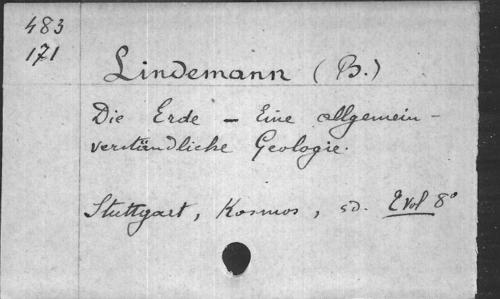 483
171
Lindemann (B.)
Die Erde - Eine allgemein-
verständliche Geologie.
Stuttgart, Kosmos, sd. 2 vol 8°